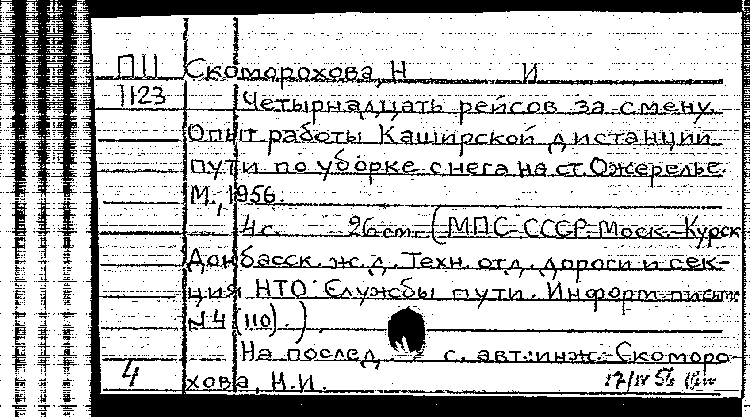 П11 Скоморохова, Н И
1123 Четырнадцать рейсов за смену.
Опыт работы Каширской дистанции
пути по уборке снега на ст. Ожерелье.
М., 1956.
4 с. 26 см. (МПС СССР. Моск.-Курск
Донбасск. ж.д. Техн. отд. дороги и сек-
ция НТО Службы пути. Информ. письмо
N 4 (110).)
На послед. с. авт.: инж. Скоморо-
4 хова, Н.И. 17/IV 56